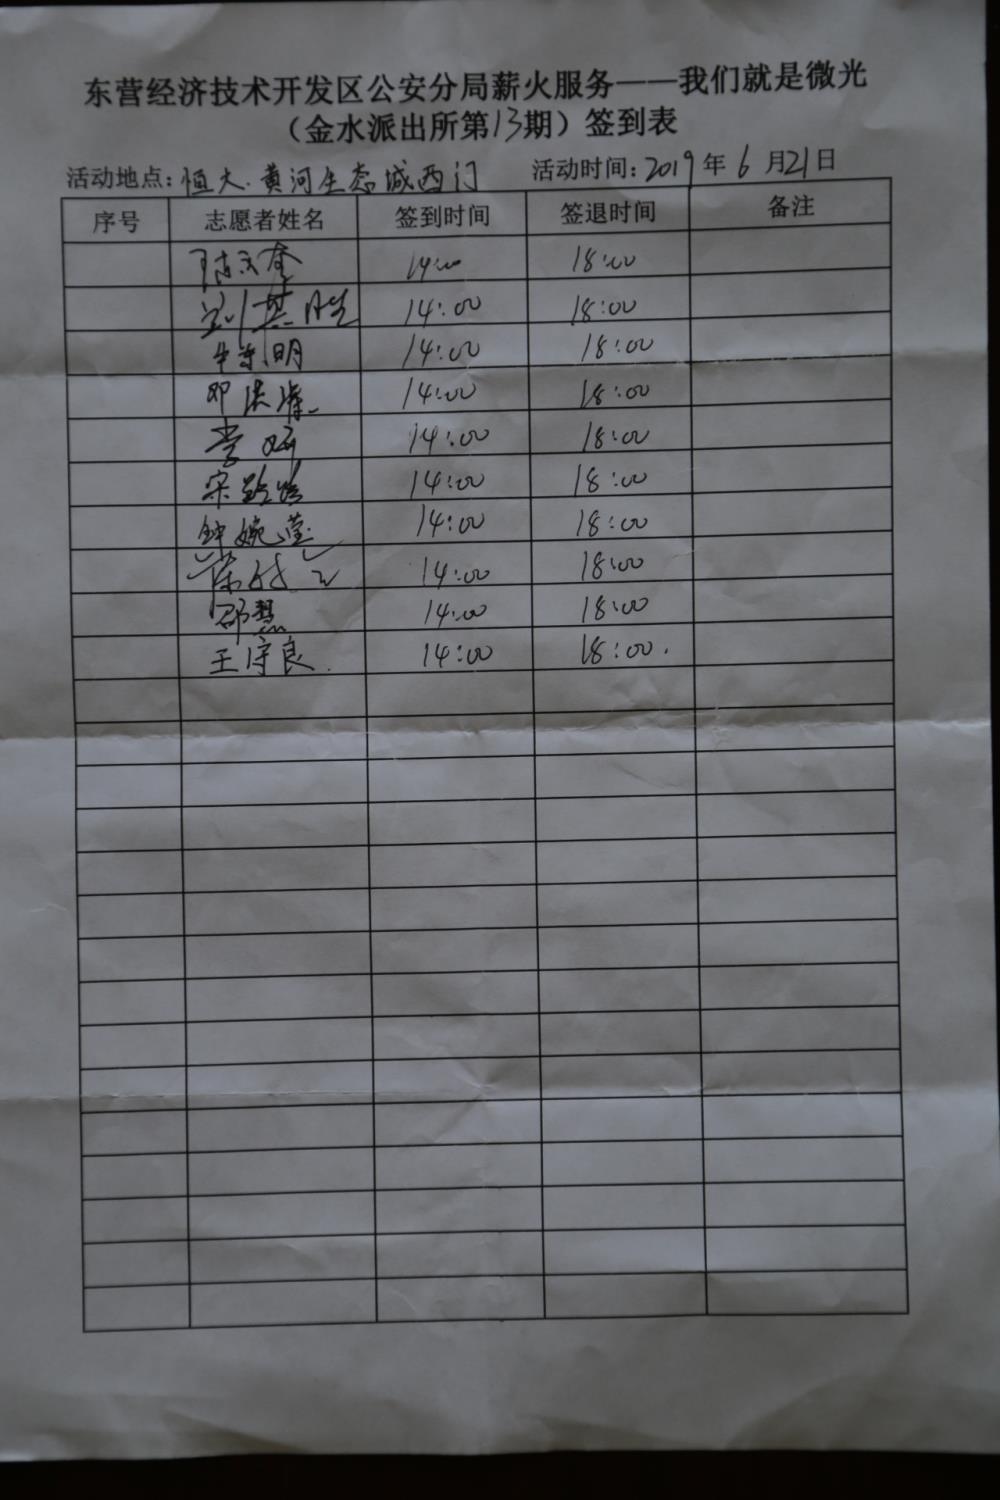 东营经济技术开发区公安分局薪火服务——我们就是微光
（金水派出所第13期）签到表
活动地点：恒大.黄河生态城西门 活动时间：2019年6月21日
序号 志愿者姓名 签到时间 签退时间 备注
14:00 18:00
刘其胜 14:00 18:00
牛东明 14:00 18:00
邓洪涛 14:00 18:00
李妍 14:00 18:00
宋路路 14:00 18:00
钟婉莹 14:00 18:00
14:00 18:00
邵慧 14:00 18:00
王守良. 14:00 18:00.